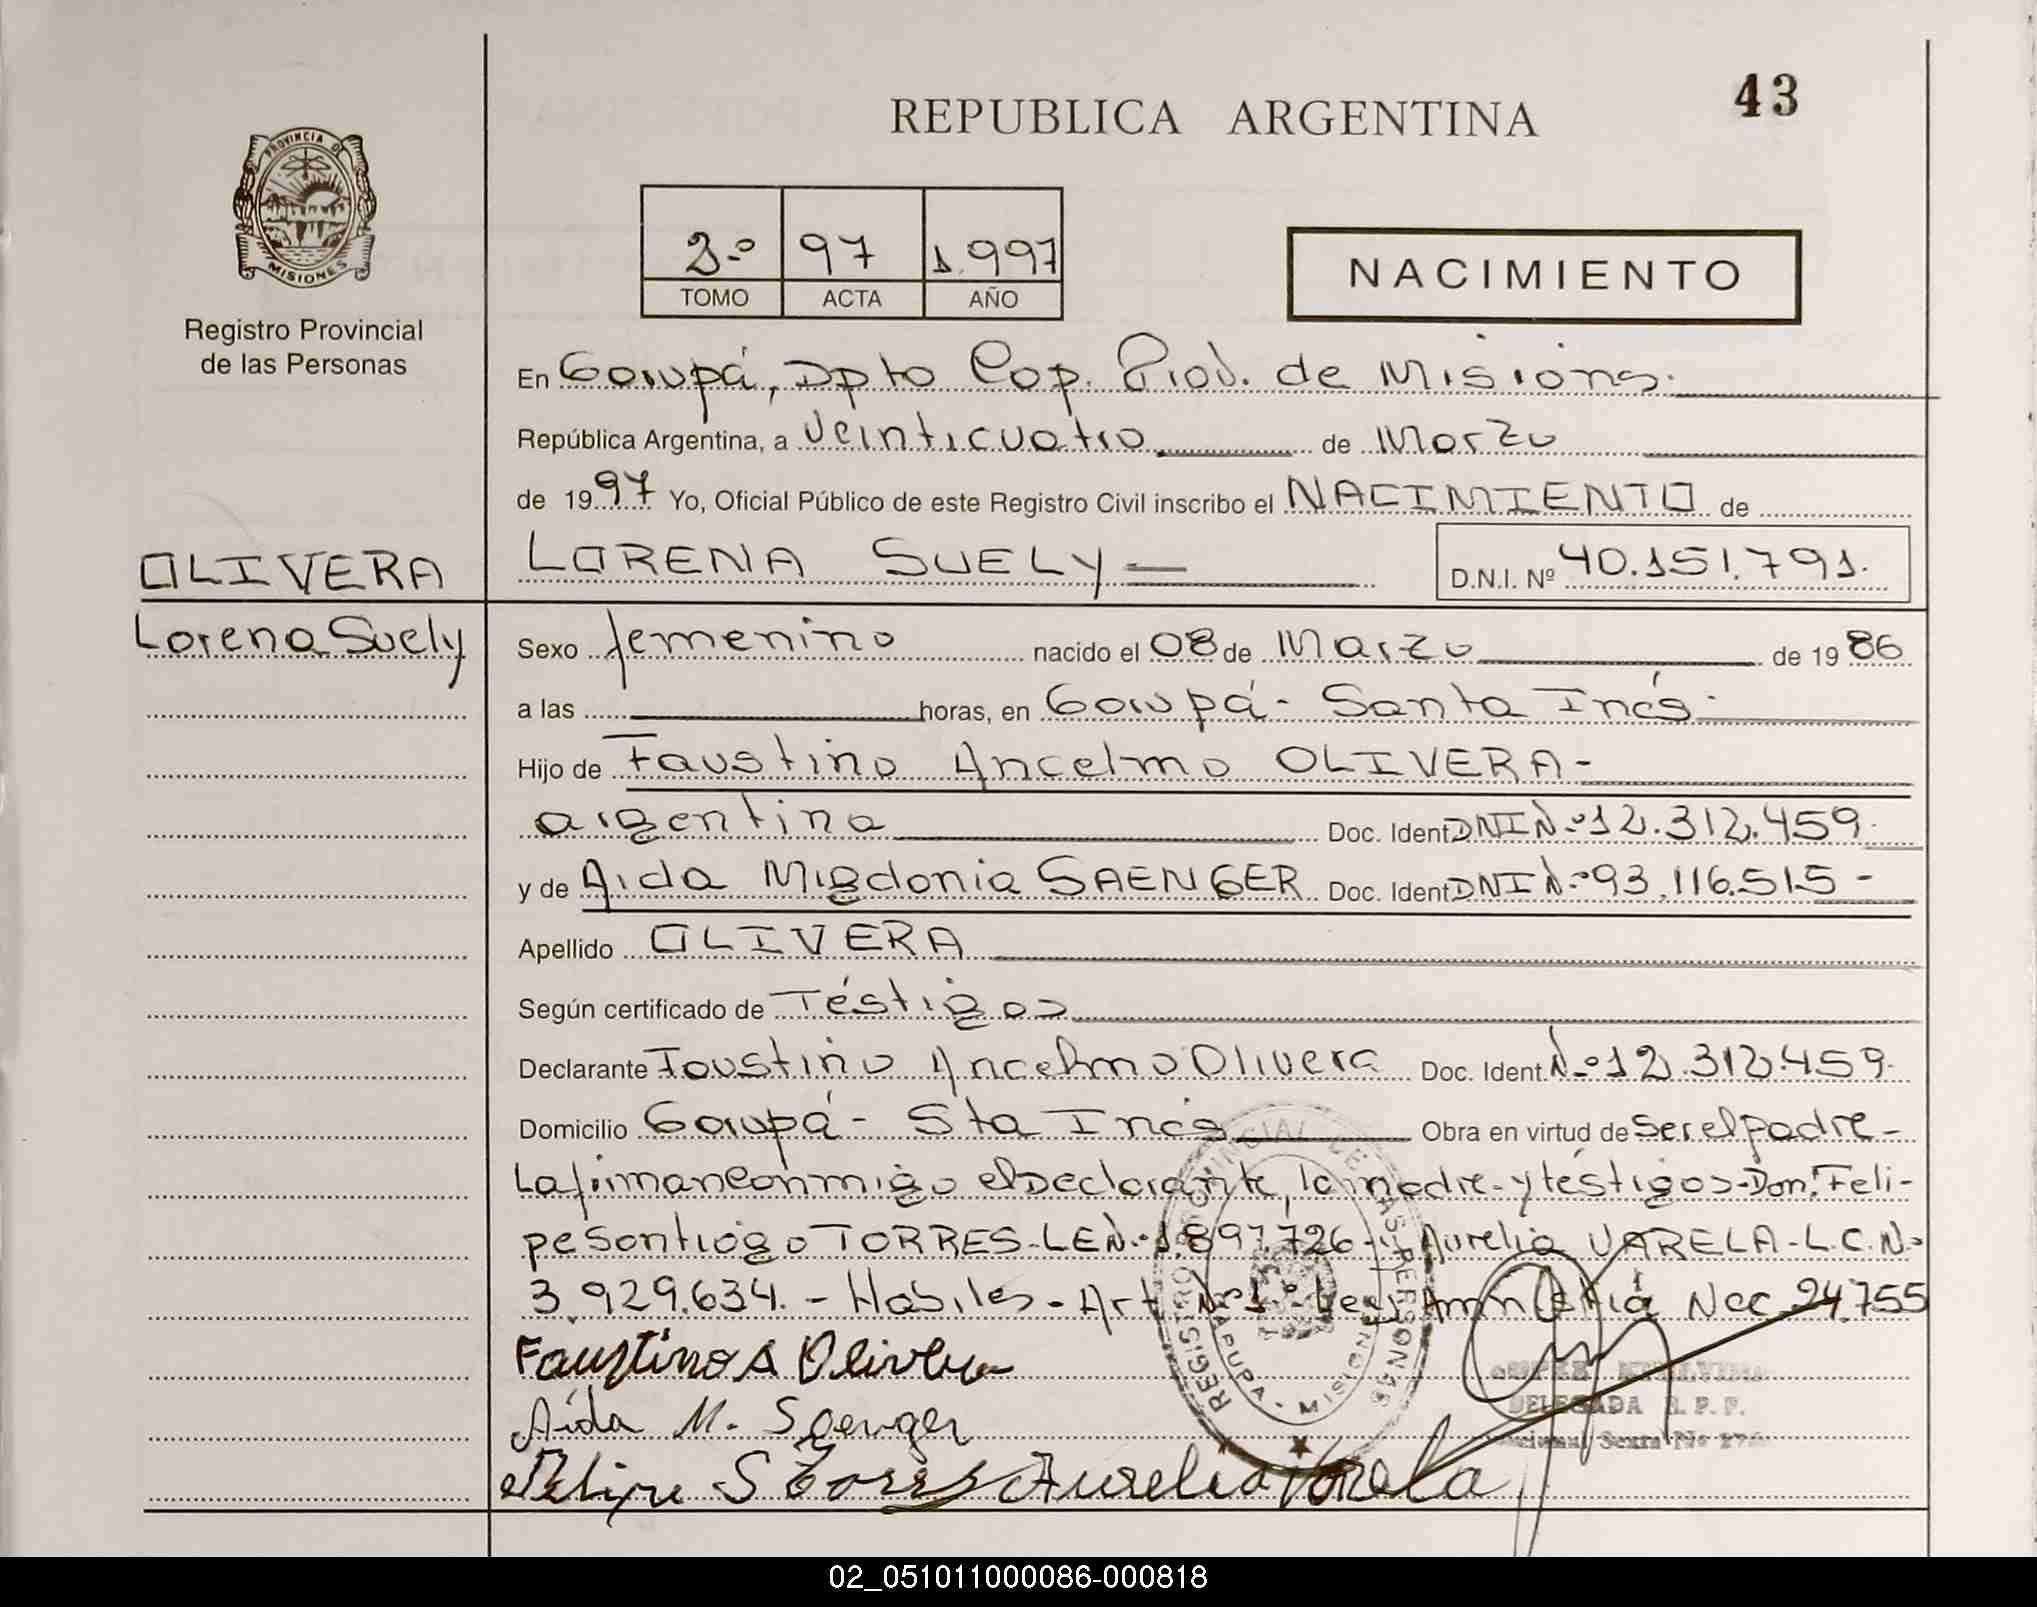 43
REPUBLICA ARGENTINA
PROVINCIA DE
MISIONES
Registro Provincial
de las Personas
2.º 97 1.997
TOMO ACTA AÑO
NACIMIENTO
En Garupá, Dpto Cap. Prov. de Misions.
República Argentina, a veinticuatro de Marzo
de 1997 Yo, Oficial Público de este Registro Civil inscribo el NACIMIENTO de
OLIVERA
LORENA SUELY
D.N.I. Nº 40.151.791.
Lorena Suely
Sexo femenino nacido el 08 de Marzo de 1986
a las horas, en Garupá - Santa Inés.
Hijo de Faustino Ancelmo OLIVERA-
argentina Doc. Ident DNI Nº 12.312.459.
y de Aida Migdonia SAENGER Doc. Ident DNI Nº 93.116.515-
Apellido OLIVERA
Según certificado de Téstigos
Declarante Faustino Ancelmo Olivera Doc. Ident. Nº 12.312.459.
Domicilio Garupá - Sta Inés Obra en virtud de Ser el padre-
La firman conmigo el Declarante, la madre y téstigos - Don: Feli-
pe Santiago TORRES-LE Nº 1.897.726- Aurelia VARELA-L.C.Nº
3.929.634.- Habiles - Art Nº 1º Ley Amnistiá Nac 24.755
Faustino A Olivera
Aida M. Saenger
Felipe S Torres Aurelia Varela
REGISTRO PROVINCIAL DE LAS PERSONAS
GARUPA - MISIONES
DELEGADA R.P.P.
02_051011000086-000818